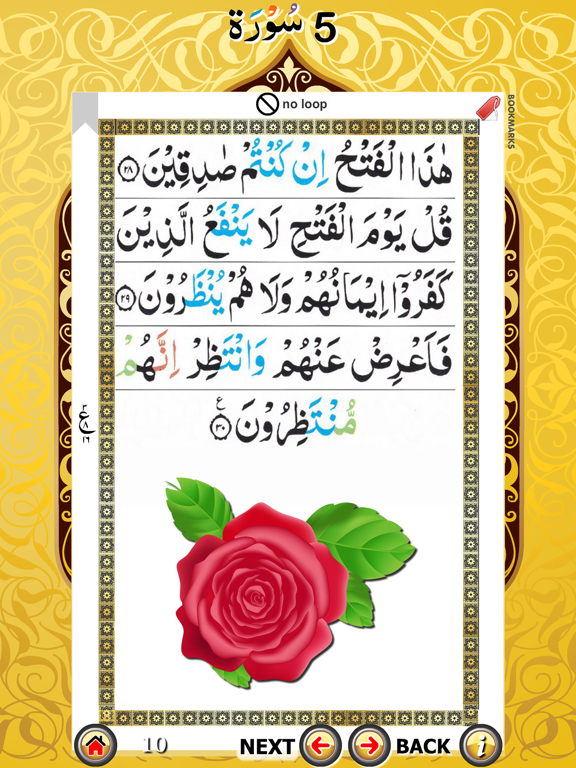 5 سُوْرَة
no loop
BOOKMARKS
هٰذَا الْفَتْحُ اِنْ كُنْتُمْ صٰدِقِيْنَ ۝۲۸
قُلْ يَوْمَ الْفَتْحِ لَا يَنْفَعُ الَّذِيْنَ
كَفَرُوْۤا اِيْمَانُهُمْ وَلَا هُمْ يُنْظَرُوْنَ ۝۲۹
فَاَعْرِضْ عَنْهُمْ وَانْتَظِرْ اِنَّهُمْ
مُّنْتَظِرُوْنَ ۝۳۰ ع
10
NEXT
BACK
i